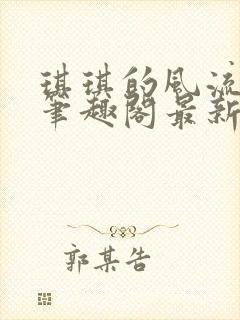 琪琪的風流
筆趣閣最新
郭某告